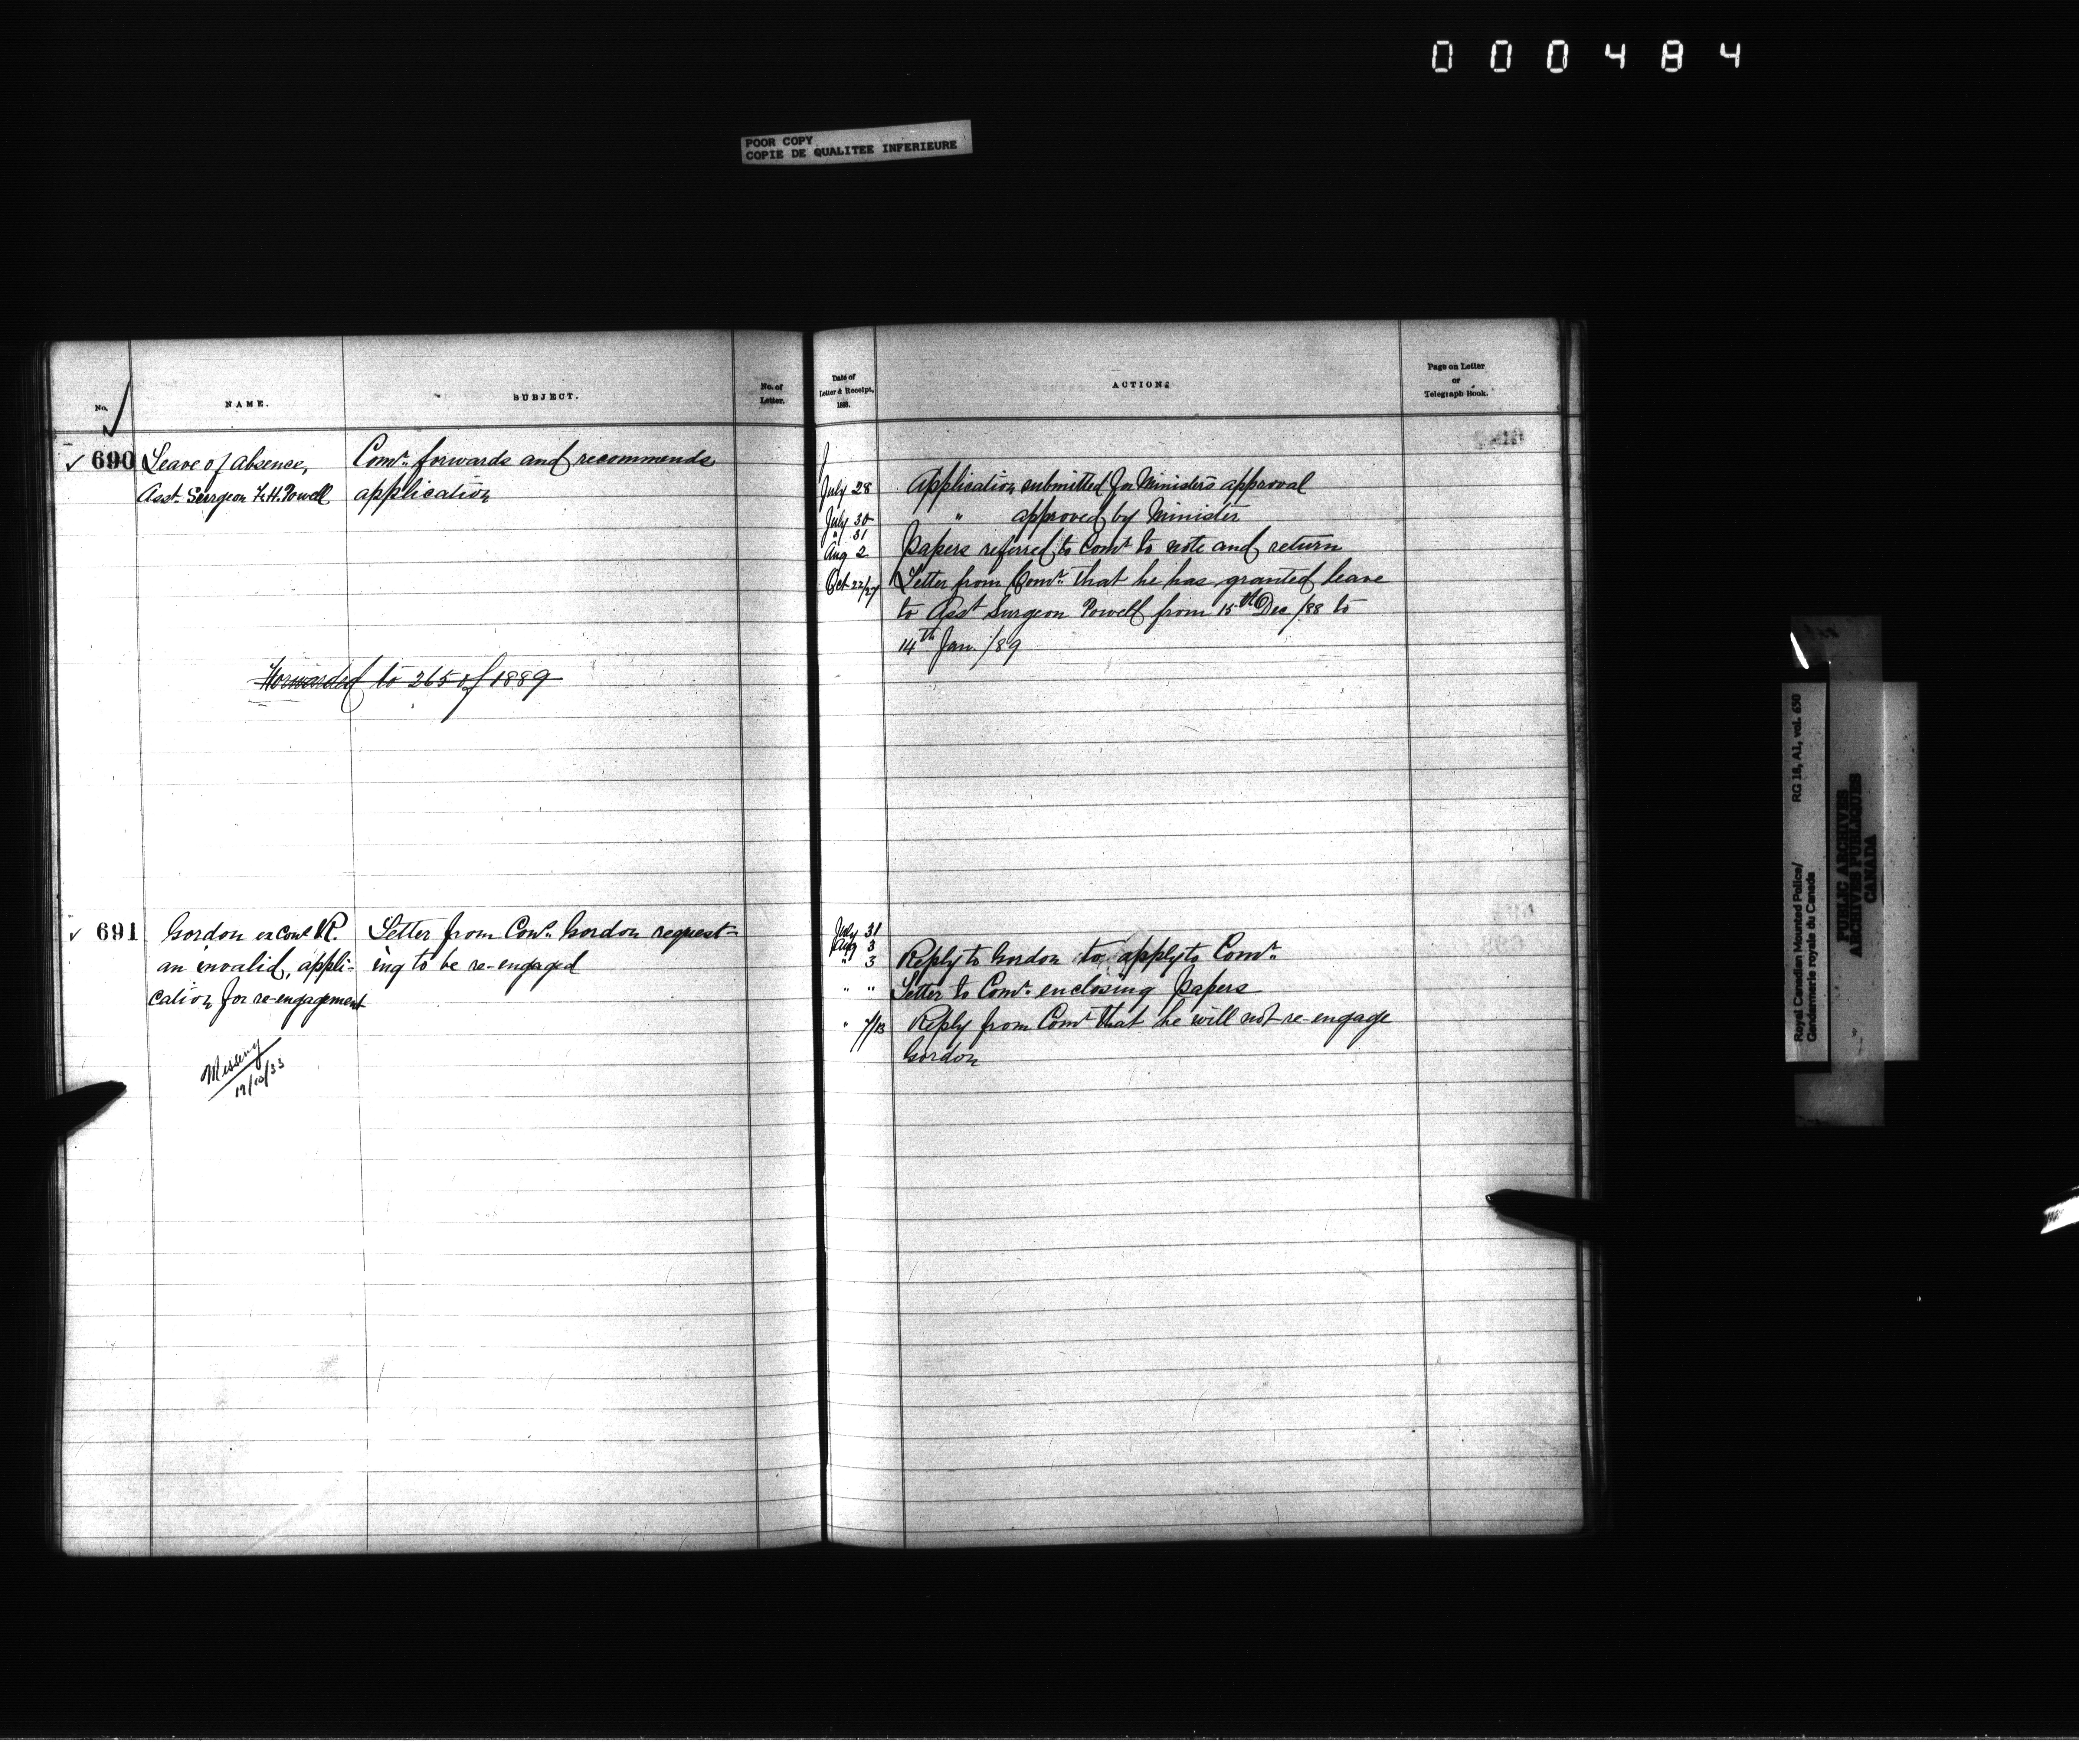 000484
POOR COPY
COPIE DE QUALITEE INFERIEURE
No.
NAME.
SUBJECT.
No. of
Letter.
Date of
Letter & Receipt,
188.
ACTION:
Page on Letter
or
Telegraph Book.
✓ 690 Leave of Absence, Comr. forwards and recommends
Asst. Surgeon F.H. Powell application
July 28 Application submitted for Minister's approval
July 30 " approved by Minister
" 31
Aug 2 Papers referred to Comr to note and return
Oct 22/27 Letter from Comr. that he has granted leave
to Asst Surgeon Powell from 15th Dec /88 to
14th Jan. /89
Forwarded to 265 of 1889
✓ 691 Gordon ex Const R. Letter from Const. Gordon request-
an invalid, appli- ing to be re-engaged
cation for re-engagement
July 31
Aug 3
" 3 Reply to Gordon to apply to Comr.
" " Letter to Comr. enclosing papers
" 7/13 Reply from Comr that he will not re-engage
Gordon
Missing
19/10/33
Royal Canadian Mounted Police/
Gendarmerie royale du Canada
RG 18, A1, vol. 650
PUBLIC ARCHIVES
ARCHIVES PUBLIQUES
CANADA